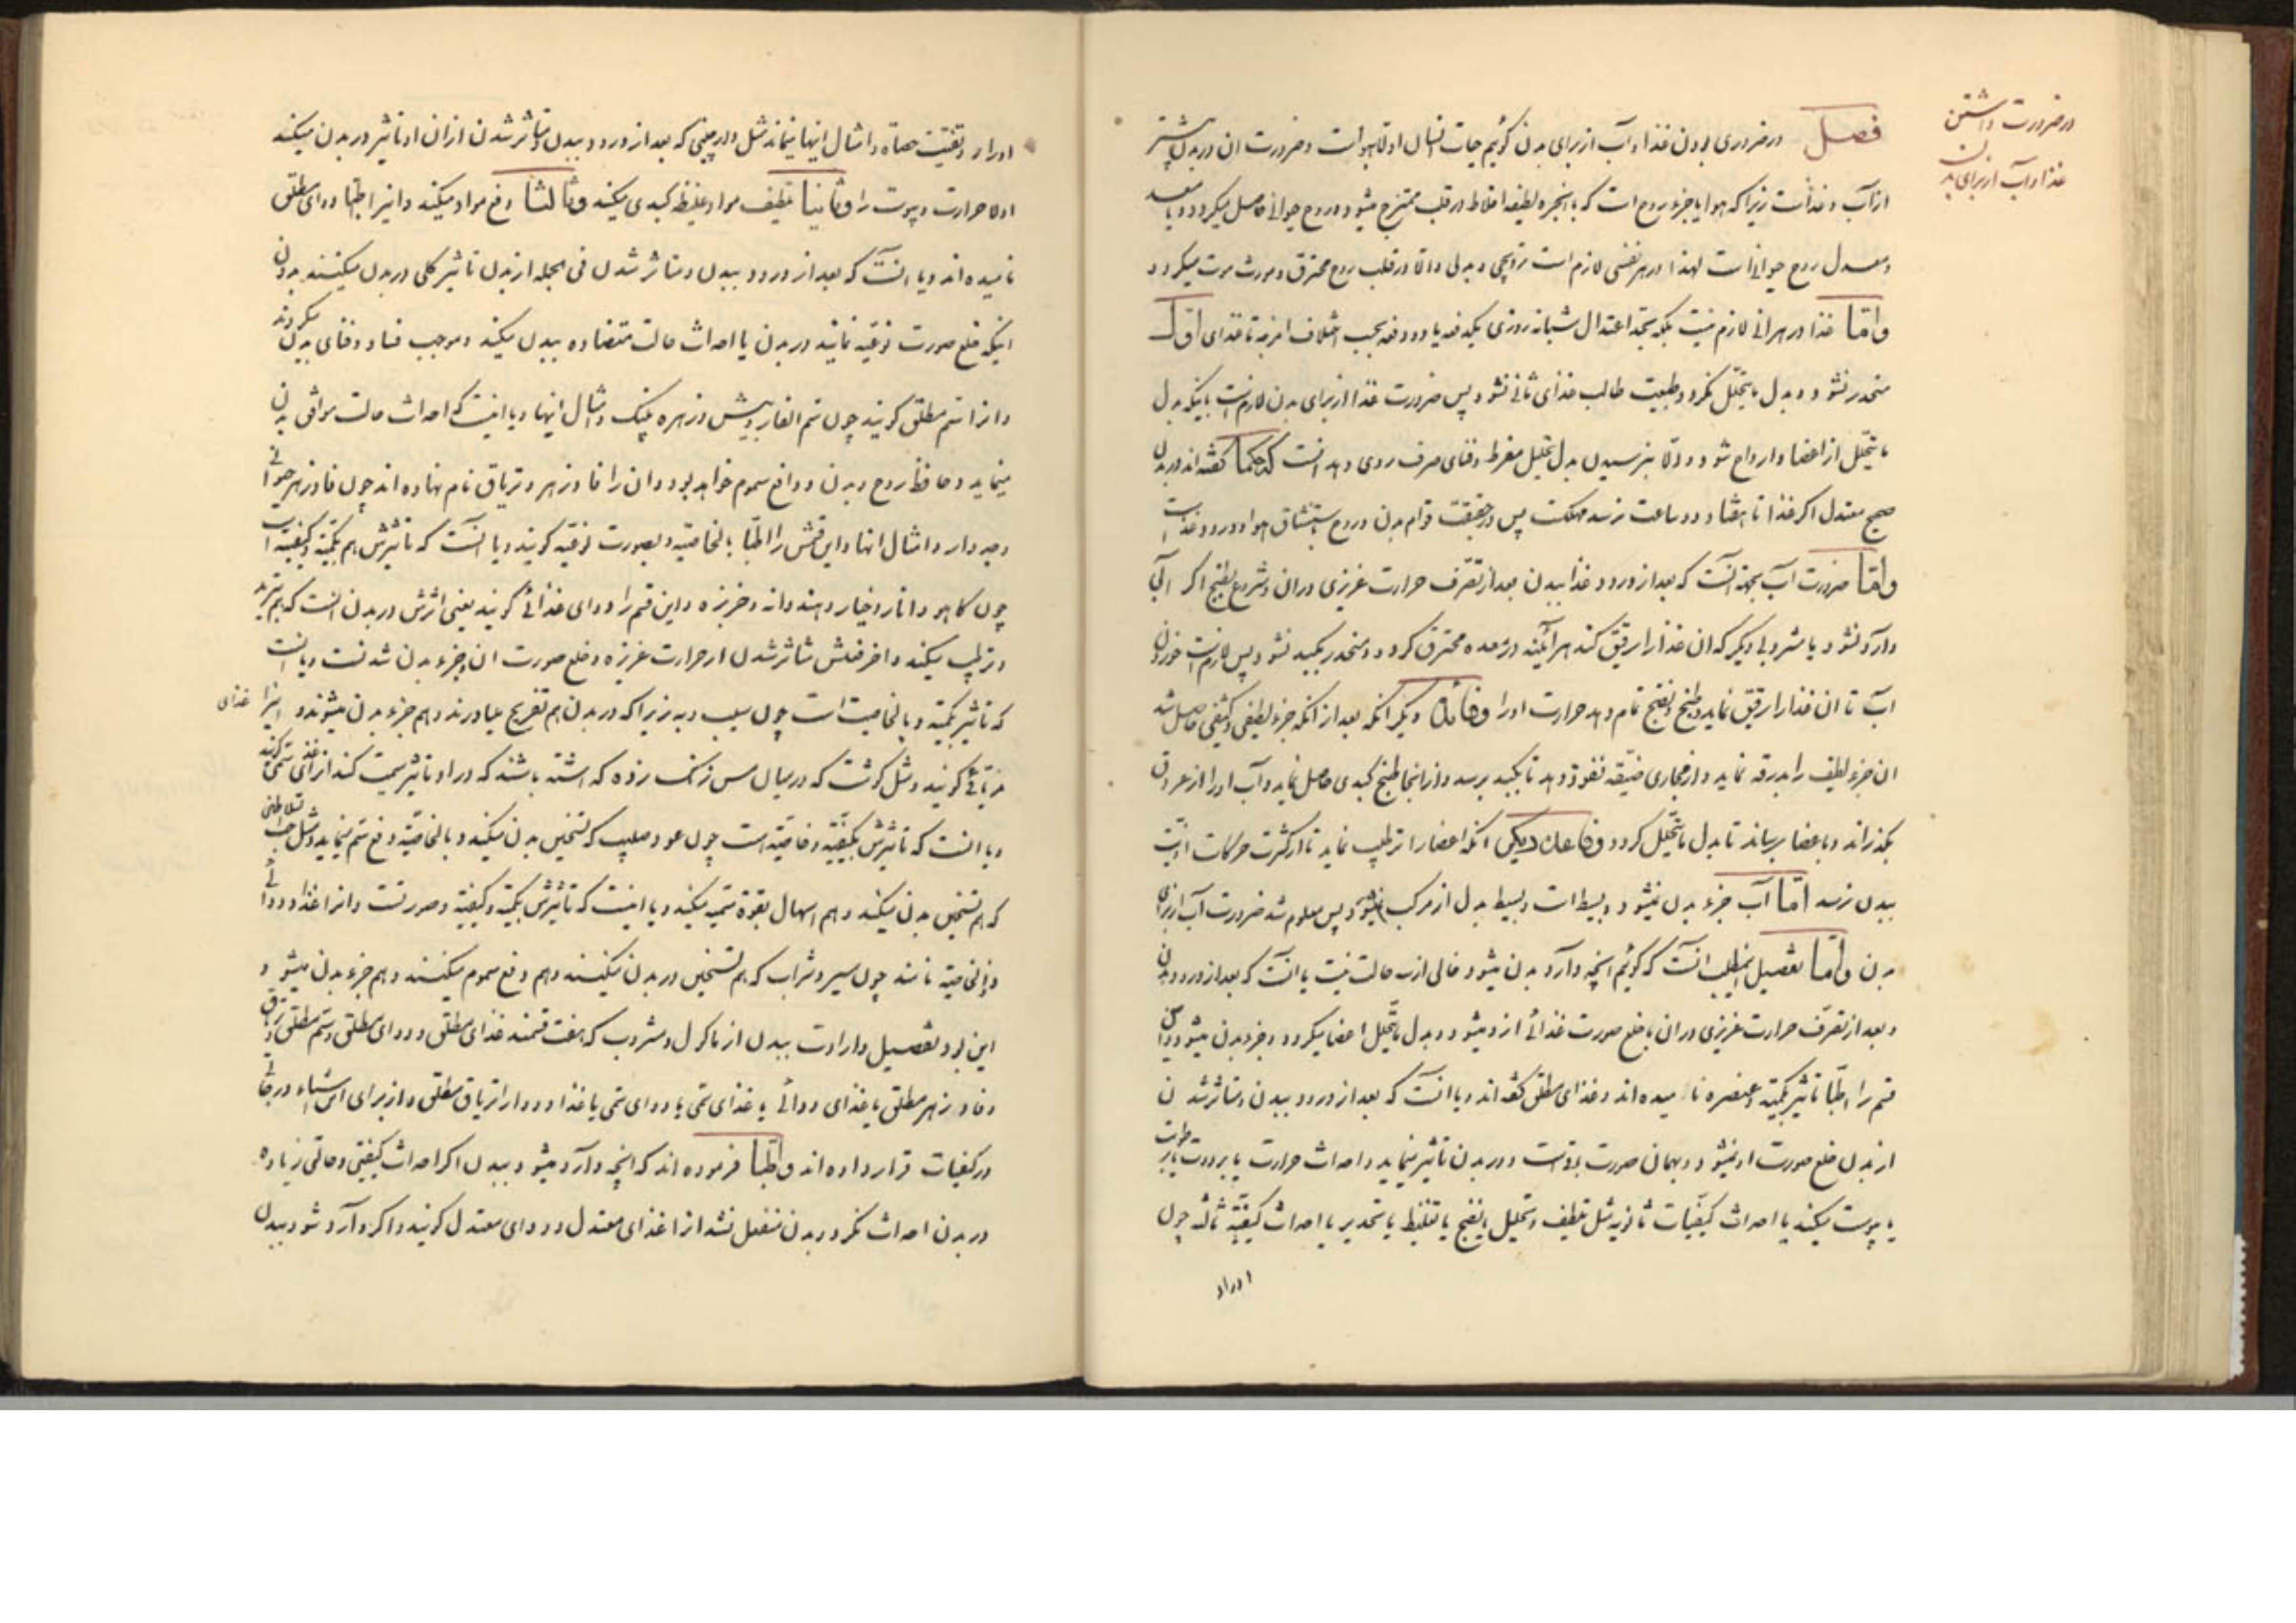 در ضرورت داشتن
غذا و آب از برای بدن
فصل در ضروری بودن غذا و آب از برای بدن گوئیم حیات انسان اولا بهواست و ضرورت ان در بدن بیشتر
از آب و غذاست زیرا که هوا یا جزء روح است که با ابخره لطیفه اخلاط در قلب ممتزج میشود و روح حیوانی حاصل میکردد و یا معد
و معدل روح حیوانیست لهذا در هر نفسی لازم است ترویحی و بدلی والا در قلب روح محترق و مورث موت میکردد
و اما غذا در هر انی لازم نیست بلکه بحد اعتدال شبانه روزی یکدفعه یا دو دفعه بحسب اختلاف امزجه تا غذای اول
منحدر نشود و بدل ما یتحلل نکردد طبیعت طالب غذای ثانی نشود پس ضرورت غذا از برای بدن لازم است باینکه بدل
ما یتحلل از اعضا و ارواح شود و الا بنرسیدن بدل تحلیل مفرط و فنای صرف روی دهد انست که حکما گفته‌اند در بدن
صحیح معتدل اکر غذا تا هفتاد و دو ساعت نرسد مهلکست پس در حقیقت قوام بدن و روح باستنشاق هوا و ورود غذاست
و اما ضرورت آب بجهة انست که بعد از ورود غذا ببدن بعد از تصرف حرارت غریزی در ان و شروع بطبخ اکر آبی
وارد نشود یا مشروبی دیکر که ان غذا را رقیق کند هر آینه در معده محترق کردد و منحدر بکبد نشود پس لازم است خوردن
آب تا ان غذا را رقیق نماید و طبخ و نضج تمام دهد حرارت او را و فائده دیکر انکه بعد از انکه جزء لطیفی و کثیفی حاصل شد
ان جزء لطیف را بدرقه نماید و از مجاری ضیقه نفوذ دهد تا بکبد برسد و از انجا طبخ کبدی حاصل نماید و آب او را از عروق
بکذراند و باعضا برساند تا بدل ما یتحلل کردد و فایده دیکر انکه اعضا را ترطیب نماید تا از کثرت حرکات اذیت
ببدن نرسد اما آب جزء بدن نمیشود و بسیط است و بسیط بدل از مرکب نمیشود پس معلوم شد ضرورت آب از برای
بدن و اما تفصیل اینمطلب انست که کوئیم انچه وارد بدن میشود خالی از سه حالت نیست یا انست که بعد از ورود ببدن
و بعد از تصرف حرارت غریزی در ان با خلع صورت غذائی از و میشود و بدل ما یتحلل اعضا میکردد و جزء بدن میشود و این
قسم را اطبا تاثیر بکمیة و عنصره نامیده‌اند و غذای مطلق گفته‌اند و یا انست که بعد از ورود ببدن و متاثر شدن
از بدن خلع صورت او نمیشود و بهمان صورت بماند و در بدن تاثیر مینماید و احداث حرارت یا برودت یا رطوبت
یا یبوست میکند یا احداث کیفیات ثانویه مثل تلطیف و تحلیل یا نضج یا تغلیظ یا تخدیر یا احداث کیفیة ثالثه چون
ادرار
ادرار و تفتیت حصاة و امثال اینها بنماند مثل دارچینی که بعد از ورود ببدن و متاثر شدن از ان او تاثیر در بدن میکند
اولا حرارت و یبوست را و ثانیا تلطیف مواد غلیظه کبدی میکند و ثالثا دفع مواد میکند و انرا اطبا دوای مطلق
نامیده‌اند و یا انست که بعد از ورود ببدن و متاثر شدن فی الجمله از بدن تاثیر کلی در بدن میکنند بدون
اینکه خلع صورت نوعیه نمایند در بدن یا احداث حالت متضاده ببدن میکند و موجب فساد و فنای بدن میکردند
و انرا سم مطلق کویند چون سم الفار و بیش و زهره پلنک و امثال اینها و یا اینست که احداث حالت موافق بدن
مینماید و حافظ روح و بدن و دافع سموم خواهد بود و ان را فادزهر و تریاق نام نهاده‌اند چون فادزهر حیوانی
و جدوار و امثال انها و این قسمش را اطبا بالخاصیة و بصورت نوعیه کویند و یا انست که تاثیرش هم بکمیة و کیفیة است
چون کاهو و انار و خیار و هندوانه و خربزه و این قسم را دوای غذائی کویند یعنی اثرش در بدن انست که هم تبرید
و ترطیب میکند و اخر فعلش متاثر شدن از حرارت غریزه و خلع صورت ان و جزء بدن شدنست و یا انست
که تاثیر بکمیة و بالخاصیت است چون سیب و به زیرا که در بدن هم تفریح میاورند و هم جزء بدن میشوند و اینرا غذای
تریاقی کویند و مثل کوشت که در میان مس زنک زده که داشته باشند که در او تاثیر سمیت کند انرا غذای سمی کویند
و یا انست که تاثیرش بکیفیة و خاصیة است چون عود صلیب که تسخین بدن میکند و بالخاصیة دفع سم مینماید و مثل حب السلاطین
که هم تسخین بدن میکند و هم اسهال بقوة سمیه میکند و یا اینست که تاثیرش بکمیة و کیفیة و صورتست و انرا غذا و دوائی
و بالخاصیة نامند چون سیر و شراب که هم تسخین در بدن میکنند و هم دفع سموم میکنند و هم جزء بدن میشود و
این بود تفصیل واردات ببدن از ماکول و مشروب که هفت قسمند غذای مطلق و دوای مطلق و سم مطلق و تریاق
و فادزهر مطلق یا غذای دوائی یا غذای سمی یا دوای سمی یا غذا و دوا را تریاق مطلق و از برای این اشیاء درجاتی
در کیفیات قرار داده‌اند و اطبا فرموده‌اند که انچه وارد میشود ببدن اکر احداث کیفیتی و حالتی زیاده
در بدن احداث نکرد و بدن منفعل نشد از ا غذای معتدل و دوای معتدل کویند و اکر وارد شود ببدن